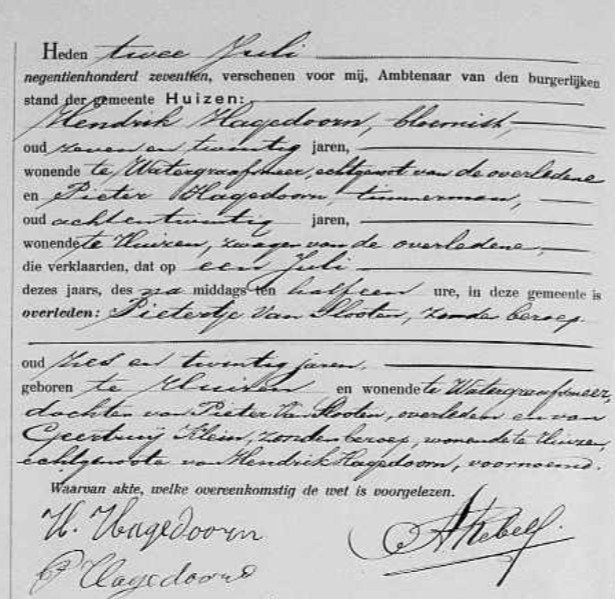 Heden twee Juli
negentienhonderd zeventien, verschenen voor mij, Ambtenaar van den burgerlijken
stand der gemeente Huizen:
Hendrik Hagedoorn, bloemist,
oud zeven en twintig jaren,
wonende te Watergraafsmeer, echtgenoot van de overledene
en Pieter Hagedoorn, timmerman,
oud achtentwintig jaren,
wonende te Huizen, zwager van de overledene,
die verklaarden, dat op een Juli
dezes jaars, des na middags ten half een ure, in deze gemeente is
overleden: Pietertje Van Slooten, zonder beroep
oud zes en twintig jaren,
geboren te Huizen en wonende te Watergraafsmeer,
dochter van Pieter Van Slooten, overleden en van
Geertruij Klein, zonder beroep, wonende te Huizen,
echtgenoote van Hendrik Hagedoorn, voornoemd.
Waarvan akte, welke overeenkomstig de wet is voorgelezen.
H. Hagedoorn
P Hagedoorn